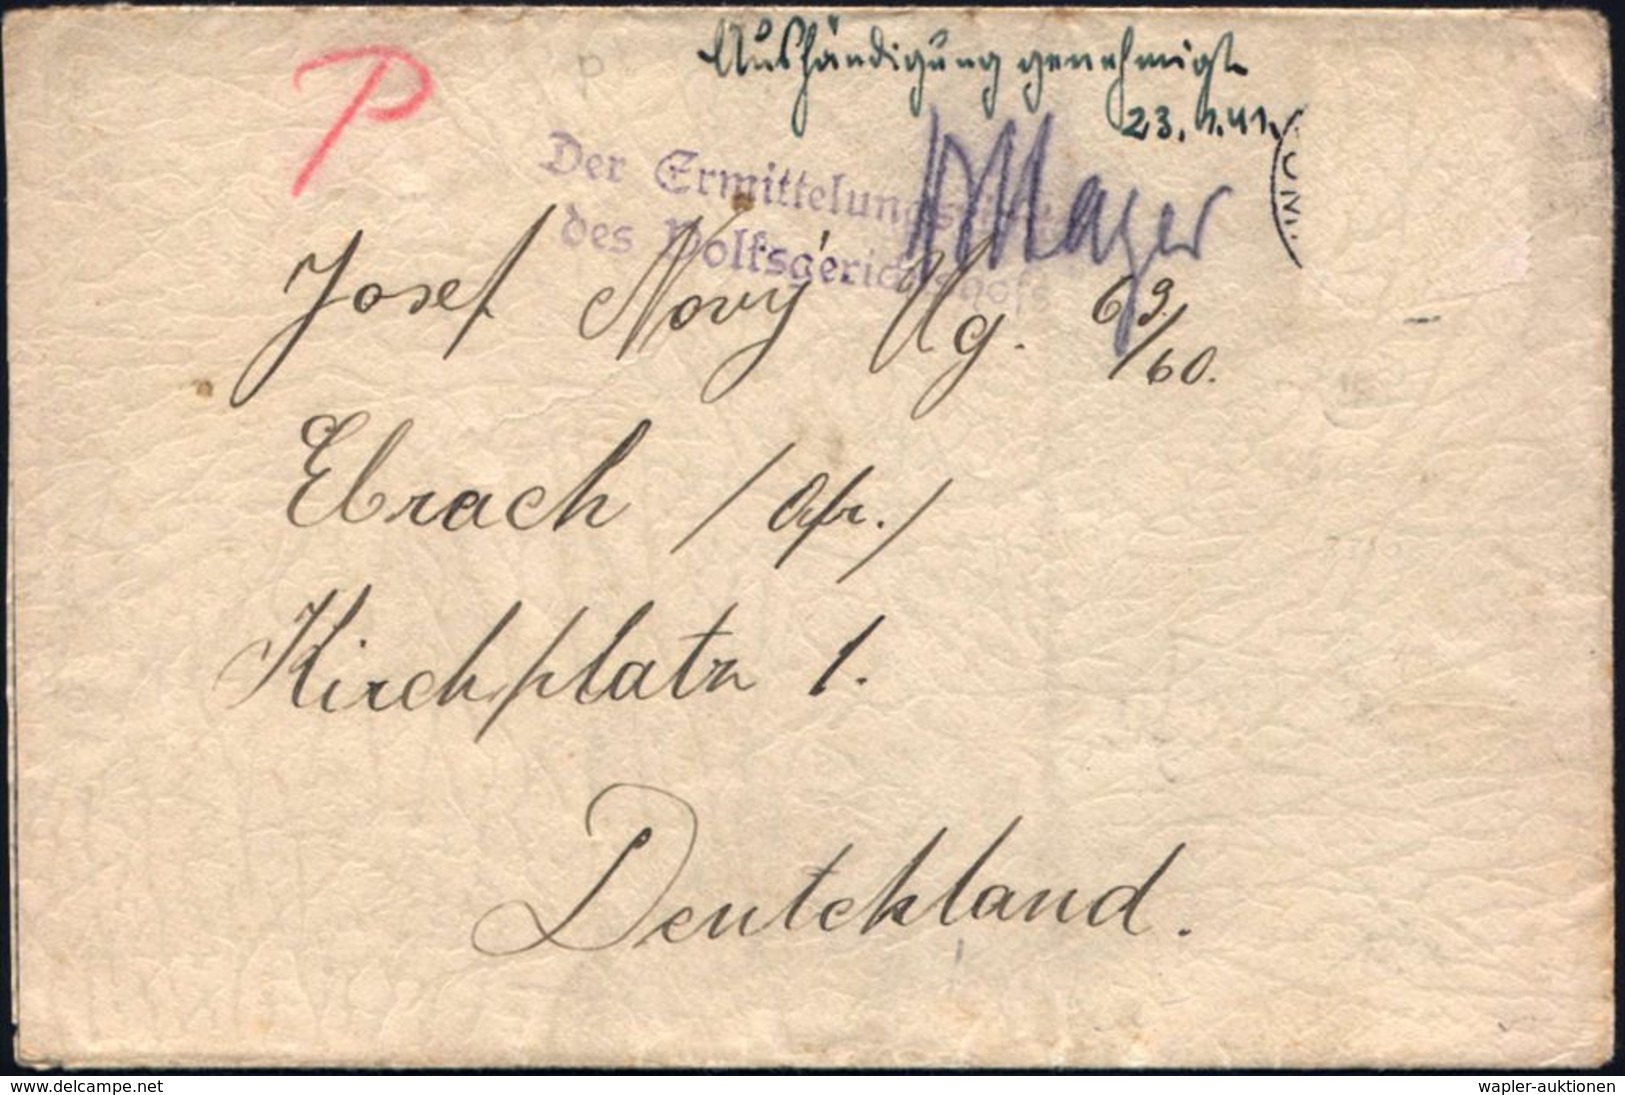 P
Aushändigung genehmigt
23.1.41.
Der Ermittelungsrichter
des Volksgerichtshofs
Mayer
Josef Nový Ug. 69/60.
Ebrach / Ofr./
Kirchplatz 1.
Deutckland.
www.delcampe.net
wapler-auktionen